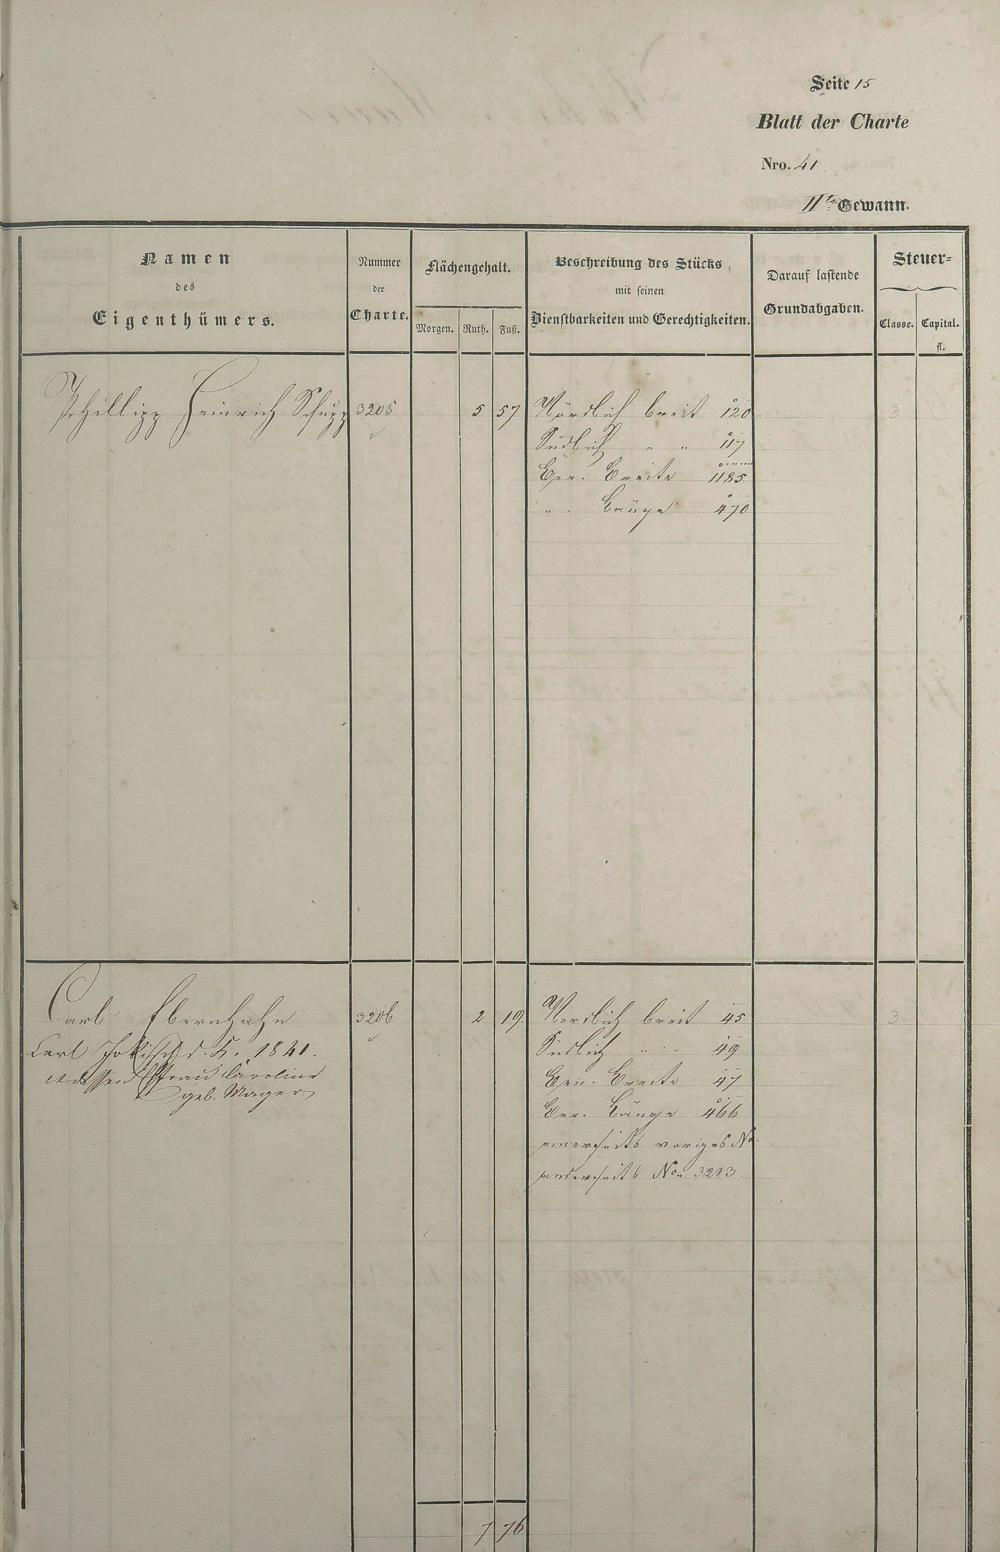 Seite 15
Blatt der Charte
Nro. 41
IIte Gewann.
Namen
des
Eigenthümers.
Nummer
der
Charte.
Flächengehalt.
Morgen. Ruth. Fuß.
Beschreibung des Stücks
mit seinen
Dienstbarkeiten und Gerechtigkeiten.
Darauf lastende
Grundabgaben.
Steuer=
Classe. Capital.
fl.
Phillipp Heinrich Schupp 3205 5 57 Nördlich breit 120 3
Südlich " " 117
Ger. Breite 1185
" Länge 470
Carl Ebernhahn 3206 2 19 Nordlich breit 45 3
Carl d. K. 1841. Südlich " " 49
dessen Frau Caroline Ger. Breite 47
geb. Mager Ger. Länge 466
einerseits voriges No.
anderseits No. 3213
7 76